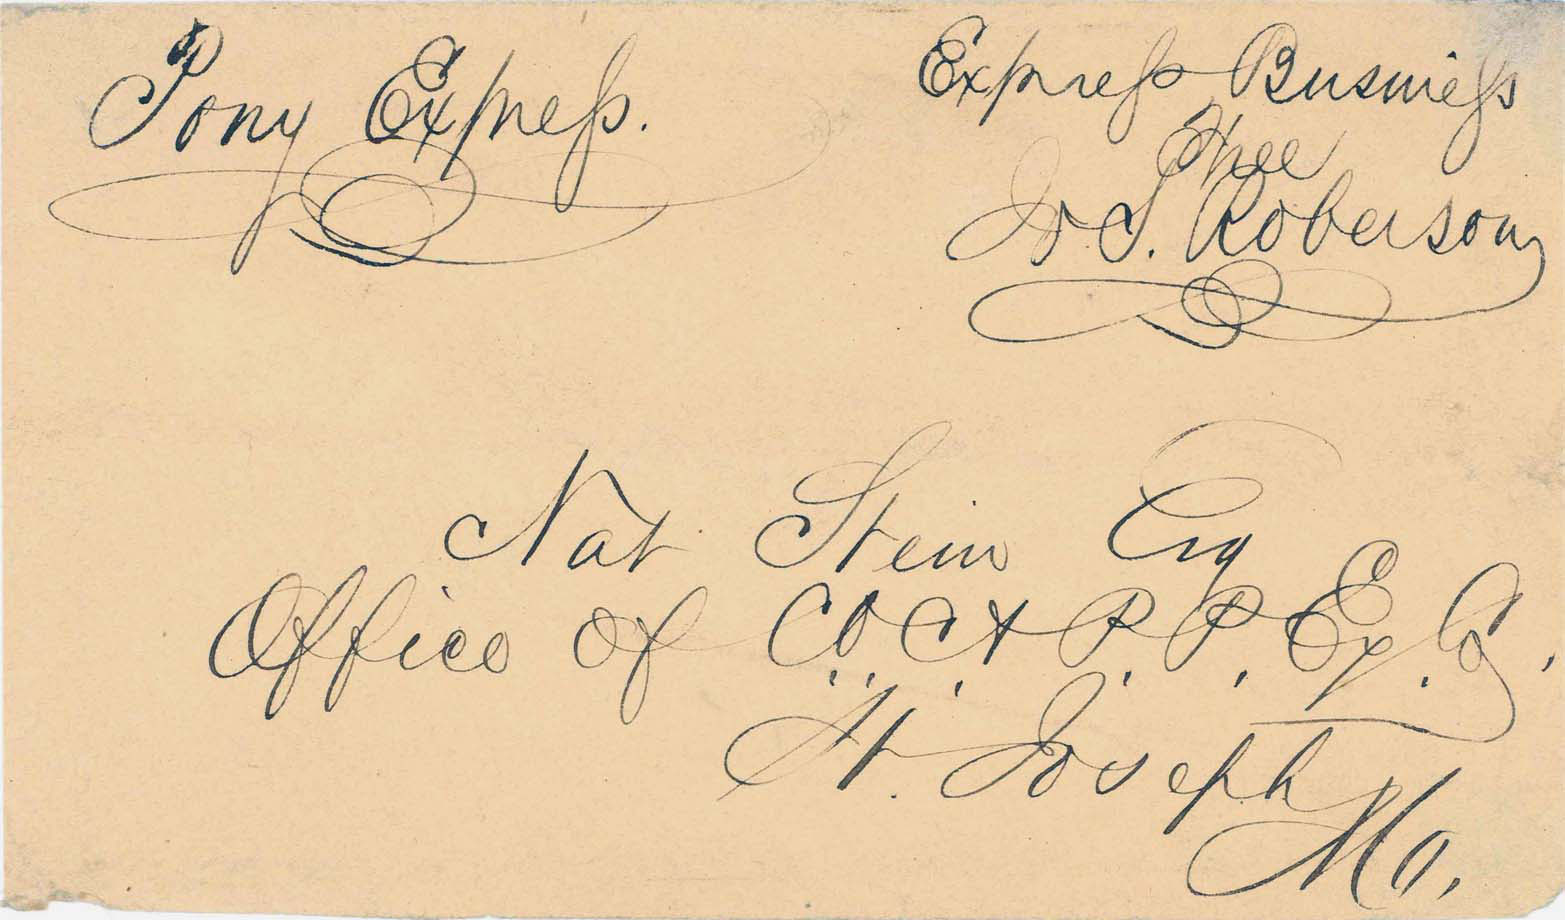 Pony Express.
Express Business
Free
Jo S. Roberson
Nat Stein Esq
Office of C. O. C. & P. P. Ex. Co.
St. Joseph
Mo.